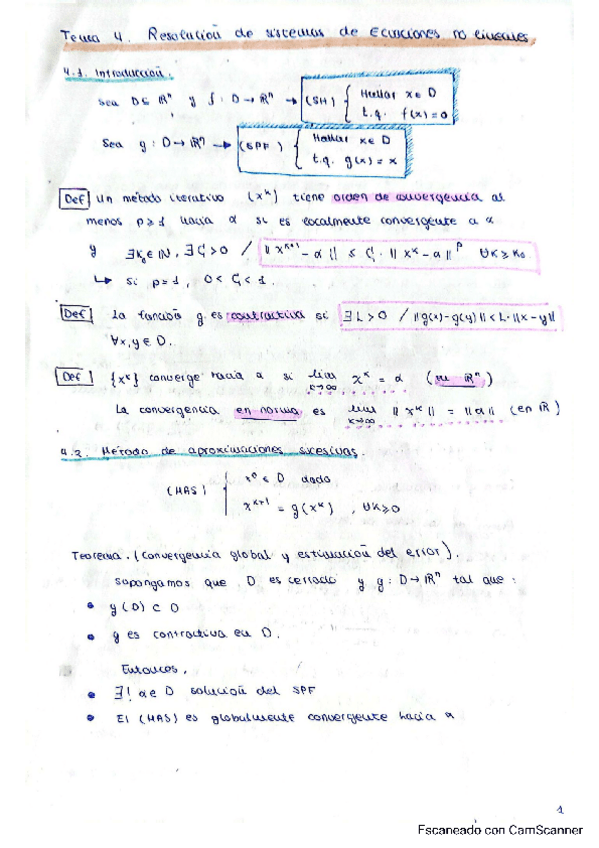 Tema 4. Resolución de sistemas de Ecuaciones no lineales.
4.1. Introducción.
Sea D⊆ ℝⁿ y f: D→ ℝⁿ → (SH) { Hallar x∈ D
t.q. f(x)=0
Sea g: D→ ℝⁿ → (SPF) { Hallar x∈ D
t.q. g(x)= x
Def Un método iterativo (xᵏ) tiene orden de convergencia al
menos p≥1 hacia α si es localmente convergente a α
y ∃k₀∈ ℕ, ∃ C>0 / ||xᵏ⁺¹-α|| ≤ C · ||xᵏ-α||ᵖ ∀k≥k₀
↳ Si p=1, 0< C<1.
Def La función g es contractiva si ∃L>0 / ||g(x)-g(y)||<L·||x-y||
∀x,y∈ D.
Def {xᵏ} converge hacia α si lim xᵏ = α (en ℝⁿ)
k→∞
La convergencia en norma es lim ||xᵏ|| = ||α|| (en ℝ)
k→∞
4.2. Método de aproximaciones sucesivas.
(MAS) { x⁰ ∈ D dado
xᵏ⁺¹ = g(xᵏ), ∀k≥0
Teorema. (Convergencia global y estimación del error).
Supongamos que D es cerrado y g: D→ℝⁿ tal que:
• g(D) ⊂ D
• g es contractiva en D.
Entonces,
• ∃! α∈ D solución del SPF
• El (MAS) es globalmente convergente hacia α
1
Escaneado con CamScanner